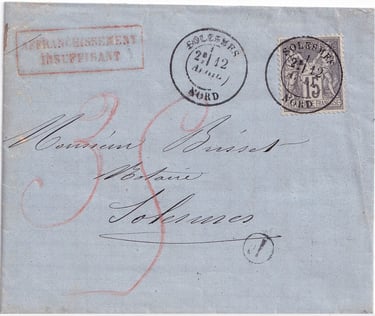 AFFRANCHISSEMENT
INSUFFISANT
SOLESMES
12
NORD
SOLESMES
12
NORD
15
35
Monsieur Brisset
Notaire
Solesmes